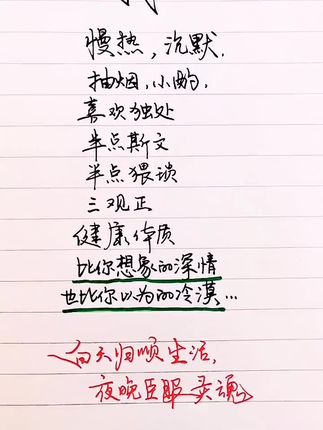 慢热，沉默．
抽烟．小酌．
喜欢独处
半点斯文
半点猥琐
三观正
健康体质
比你想象的深情
也比你以为的冷漠…
白天归顺生活，
夜晚臣服灵魂